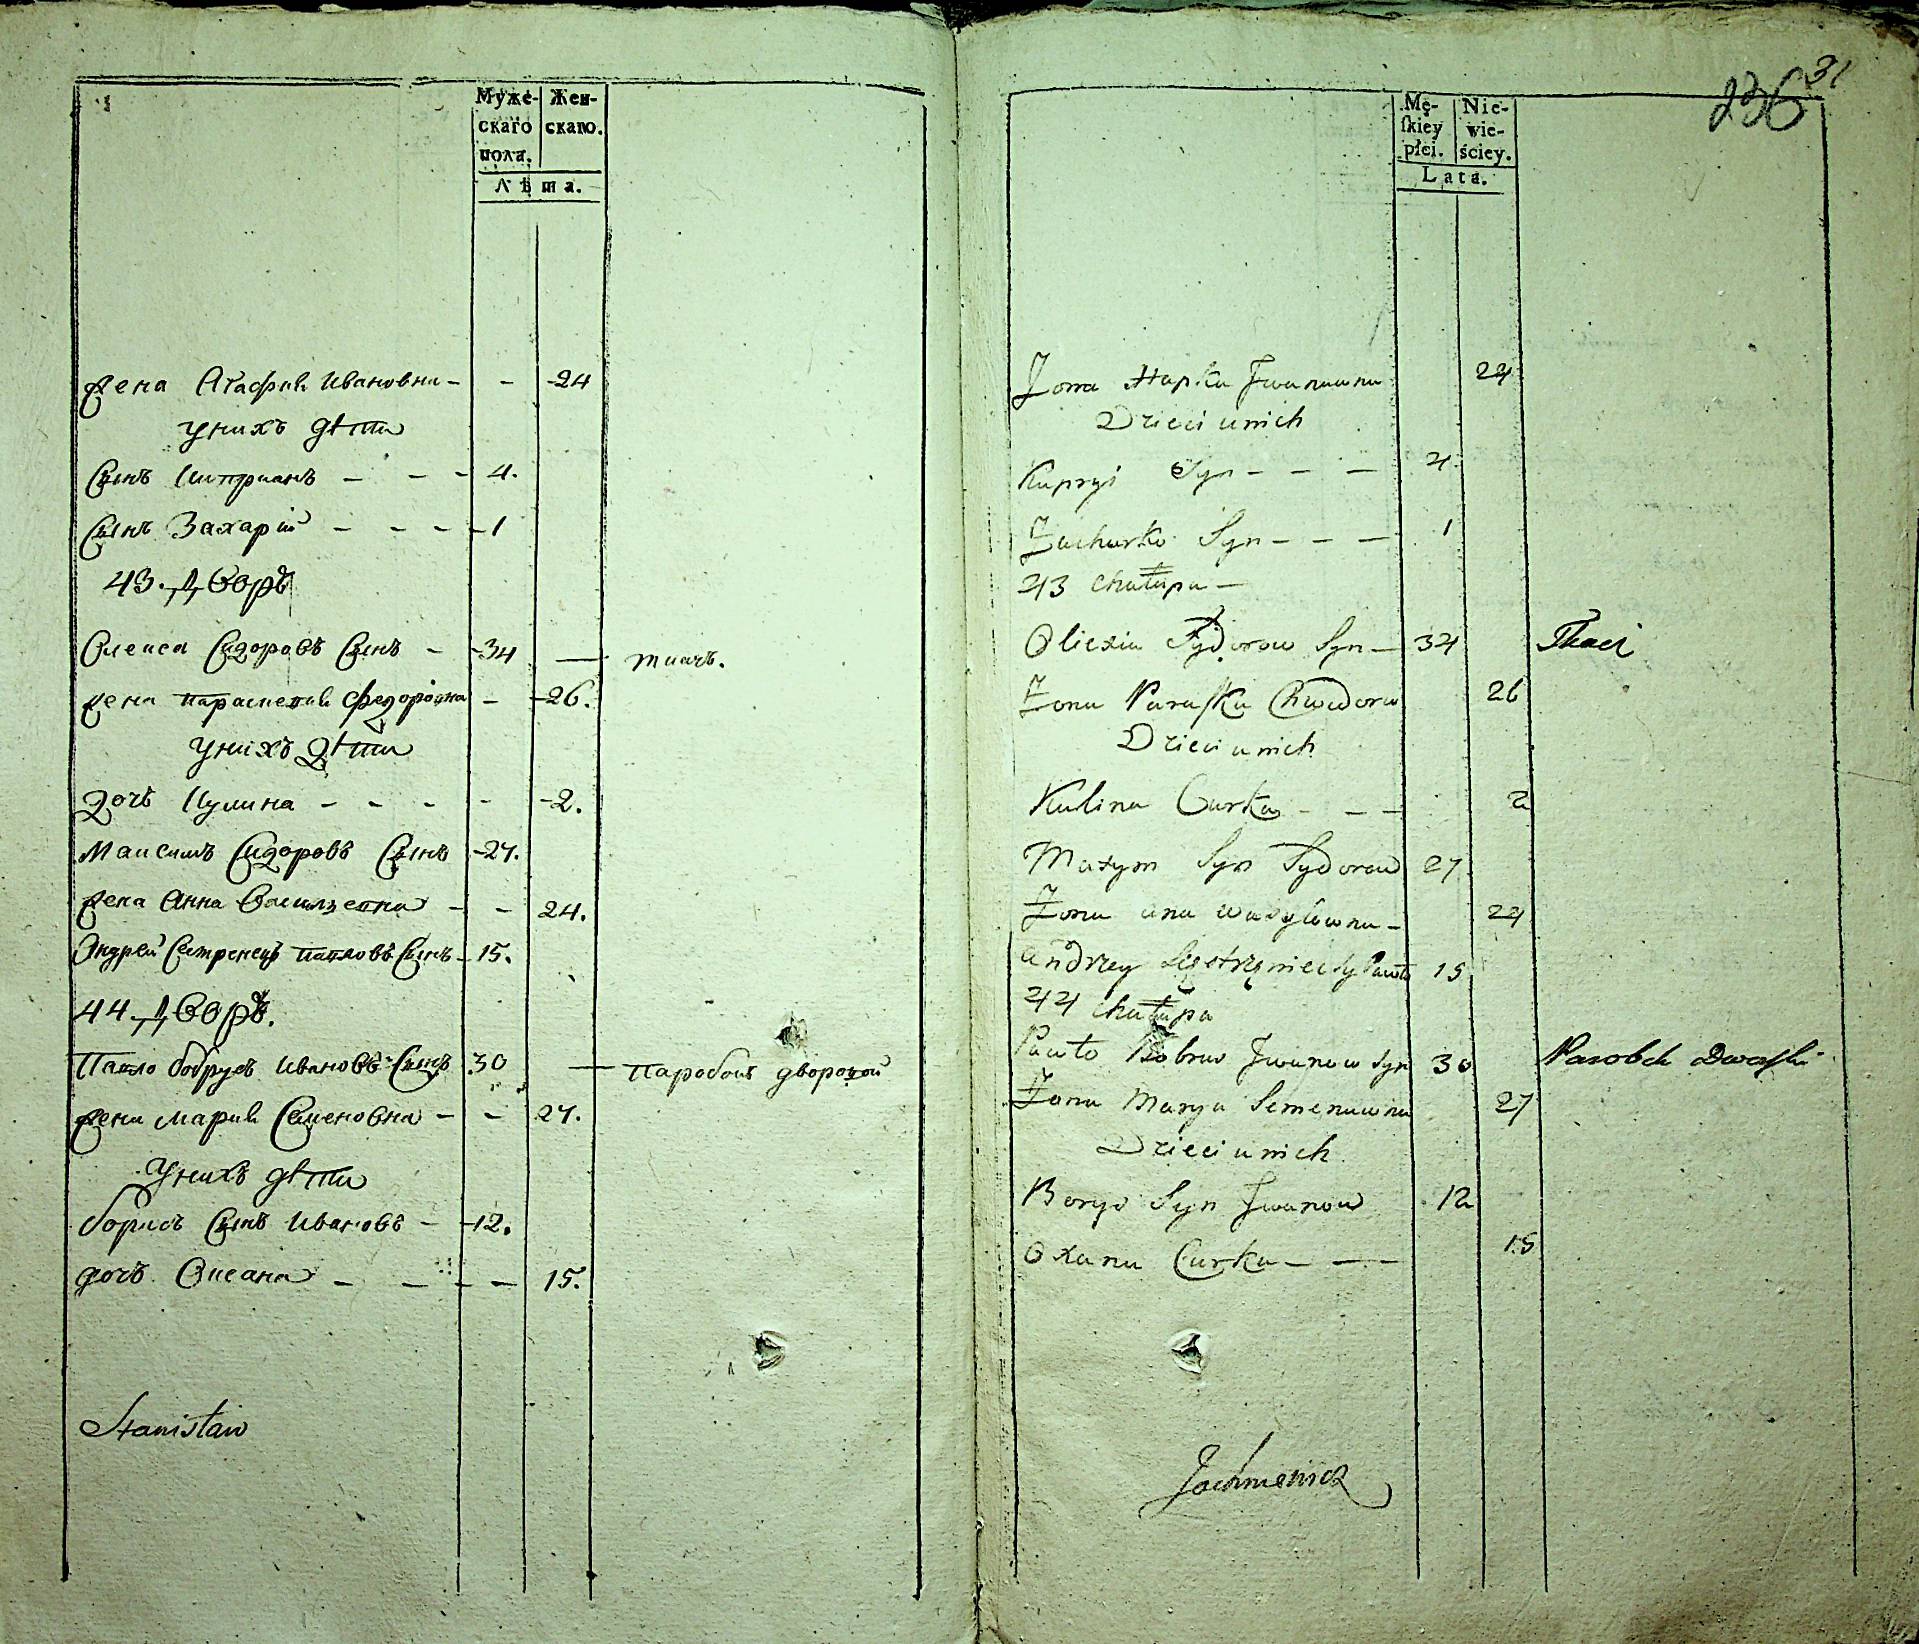 Муже-
скаго
пола.
Жен-
скаго.
Лѣта.
жена Агафия Ивановна - - 24
у нихъ дѣти
Сынъ Киприанъ - - - 4.
Сынъ Захарій - - - 1
43. Дворъ
Олекса Сидоровъ Сынъ - 34 — ткачъ.
жена Параскевия Федоровна - 26.
у нихъ дѣти
дочь Кулина - - - - 2.
Максимъ Сидоровъ Сынъ - 27.
жена Анна Василевна - - 24.
Андрей Сестренецъ Павловъ Сынъ - 15.
44. Дворъ.
Павло Бобруев Ивановъ Сынъ 30 — Паробокъ дворовой
жена Мария Семеновна - - 27.
у нихъ дѣти
Борисъ Сынъ Ивановъ - 12.
дочь Оксана - - - - 15.
Stanisław
236 31
Mę-
ſkiey
płci.
Nie-
wie-
ściey.
Lata.
Zona Hapka Jwanuwna 24
Dzieci u nich
Kupryi Syn - - - 4
Zacharko Syn - - - 1
43 Chałupa -
Olexia Sydorow Syn - 34 Tkacz
Zona Paraſka Chwedorow 26
Dzieci u nich
Kulina Curka - - - 2
Maxym Syn Sydorow 27
Zona ana Wasylowna - 24
Andrzey Siestrzeniec Pawło 15
44 Chałupa
Pawło Bobruw Jwanow Syn 30 Parobek Dworſki
Zona Marya Semenuwna 27
Dzieci u nich
Borys Syn Jwanow 12
Oxana Curka - - - 15
Jachimowicz